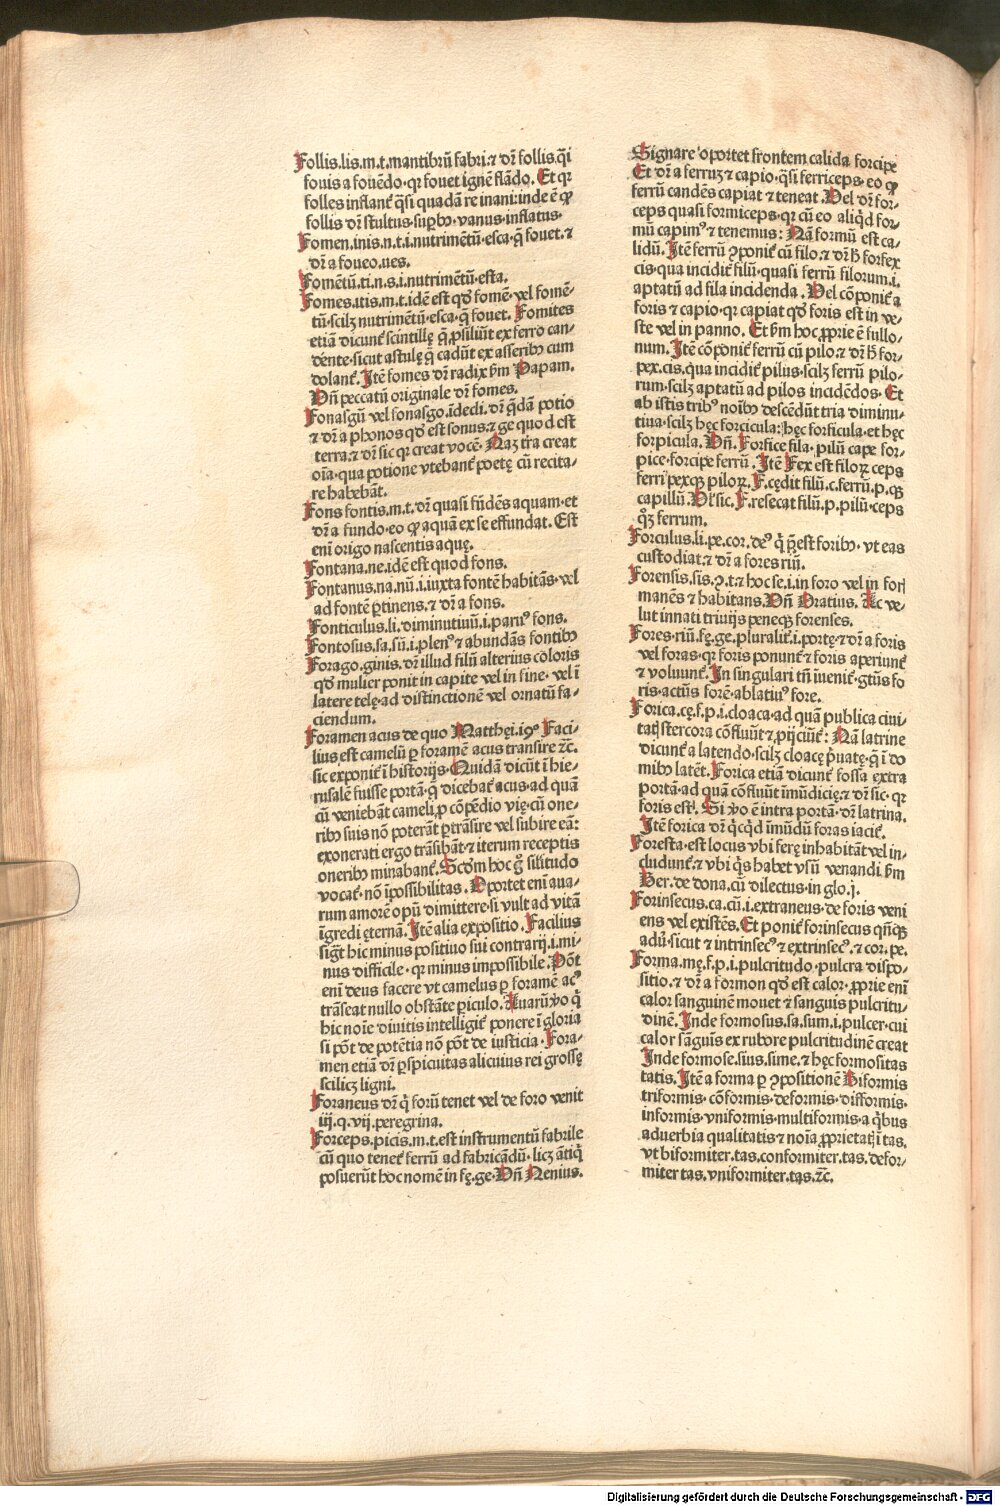 Follis.lis.m.t.mantibrũ fabri.⁊ dr̃ follis.q̃i
fouis a fouẽdo.qꝛ fouet ignẽ flãdo. Et qꝛ
folles inflant᷑ q̃si quadã re inani:inde ẽ ꝙ
follis dr̃ stultus.suꝑbꝰ.vanus.inflatus.
Fomen.inis.n.t.i.nutrimẽtũ.esca.q̃ fouet.⁊
dr̃ a foueo.ues.
Fomẽtũ.ti.n.s.i.nutrimẽtũ.esta.
Fomes.itis.m.t.idẽ est qđ fomẽ.vel fomẽ-
tũ.scilꝫ nutrimẽtũ.esca.q̃ fouet. Fomites
etiã dicunt᷑ scintillę q̃ ꝓsiliũt ex ferro can-
dente.sicut astulę q̃ cadũt ex asseribꝰ cum
dolant᷑. Itẽ fomes dr̃ radix ẞm Papam.
Vñ peccatũ originale dr̃ fomes.
Fonasgũ vel fonasgo.ĩdedi.dr̃ q̃dã potio
⁊ dr̃ a phonos qđ est sonus.⁊ ge quod est
terra.⁊ dr̃ sic qꝛ creat vocẽ. Naꝫ tr̃a creat
oĩa.qua potione vtebant᷑ poetę cũ recita-
re habebãt.
Fons fontis.m.t.dr̃ quasi fũdẽs aquam.et
dr̃ a fundo.eo ꝙ aquã ex se effundat. Est
eni origo nascentis aquę.
Fontana.ne.idẽ est quod fons.
Fontanus.na.nũ.i.iuxta fontẽ habitãs.vel
ad fontẽ ꝑtinens.⁊ dr̃ a fons.
Fonticulus.li.diminutiuũ.i.paruꝰ fons.
Fontosus.sa.sũ.i.plenꝰ ⁊ abundãs fontibꝰ
Forago.ginis.dr̃ illud filũ alterius coloris
qđ mulier ponit in capite vel in fine.vel ĩ
latere telę.ad distinctionẽ vel ornatũ fa-
ciendum.
Foramen acus de quo Matthęi.19ꝰ Faci-
lius est camelũ ꝑ foramẽ acus transire ⁊c̃.
sic exponit᷑ ĩ historijs. Quidã dicũt ĩ hie-
rusalẽ fuisse portã.q̃ dicebat᷑ acus.ad quã
cũ veniebãt cameli.ꝓ cõpẽdio vię.cũ one-
ribꝰ suis nõ poterãt ꝑtrãsire vel subire eã:
exonerati ergo trãsibãt.⁊ iterum receptis
oneribꝰ minabant᷑. Scđm hoc g̊ silĩtudo
vocat᷑.nõ ĩpossibilitas. Oportet eni aua-
rum amorẽ opũ dimittere.si vult ad vitã
ĩgredi ęternã. Itẽ alia expositio. Facilius
sigt̃ hic minus positiuo sui contrarij.i.mi-
nus difficile.qꝛ minus impossibile. Põt
eni deus facere vt camelus ꝑ foramẽ acꝰ
trãseat nullo obstãte ꝑiculo. Auarũ ꝟo q̊
hic noĩe diuitis intelligit᷑ ponere ĩ gloria
si põt de potẽtia nõ põt de iusticia. Fora-
men etiã dr̃ ꝑspicuitas alicuius rei grossę
scilicꝫ ligni.
Foraneus dr̃ q̊ forũ tenet vel de foro venit
iij.q.vij.peregrina.
Forceps.picis.m.t.est instrumentũ fabrile
cũ quo tenet᷑ ferrũ ad fabricãdũ.licꝫ ãtiq̊
posuerũt hoc nomẽ in fę.ge. Vñ Nenius.
Signare oportet frontem calida forcipe
Et dr̃ a ferruꝫ ⁊ capio.q̃si ferriceps.eo ꝙ
ferrũ candẽs capiat ⁊ teneat. Vel dr̃ for-
ceps quasi formiceps.qꝛ cũ eo aliqd̃ for-
mũ capimꝰ ⁊ tenemus: Nã formũ est ca-
lidũ. Itẽ ferrũ ꝯponit᷑ cũ filo.⁊ dr̃ ħ forfex
cis.qua incidit᷑ filũ.quasi ferrũ filorum.i.
aptatũ ad fila incidenda. Vel cõponit᷑ a
foris ⁊ capio.qꝛ capiat qđ foris est in ve-
ste vel in panno. Et ẞm hoc ꝓprie ẽ fullo-
num. Itẽ cõponit᷑ ferrũ cũ pilo.⁊ dr̃ ħ for-
pex.cis.qua incidit᷑ pilus.scilꝫ ferrũ pilo-
rum.scilꝫ aptatũ ad pilos incidẽdos. Et
ab istis tribꝰ noĩbꝰ descẽdũt tria diminu-
tiua.scilꝫ hęc forcicula:hęc forficula.et hęc
forpicula. Vñ. Forfice fila.pilũ cape for-
pice.forcipe ferrũ. Itẽ Fex est filoꝝ ceps
ferri pexqꝫ piloꝝ. F.cędit filũ.c.ferrũ.p.qꝫ
capillũ. Vl̃ sic. F.resecat filũ.p.pilũ.ceps
qꝫ ferrum.
Forculus.li.pe.cor.deꝰ q̊ p̃est foribꝰ.vt eas
custodiat.⁊ dr̃ a fores riũ.
Forensis.sis.ꝯ.t.⁊ hoc se.i.in foro vel in fori
manẽs ⁊ habitans. Vñ Oratius. Ac ve-
lut innati triuijs peneqꝫ forenses.
Fores.riũ.fę.ge.pluralit᷑.i.portę.⁊ dr̃ a foris
vel foras.qꝛ foris ponunt᷑ ⁊ foris aperiunt᷑
⁊ voluunt᷑. In singulari tñ ĩuenit᷑.gtũs fo
ris.actũs forẽ.ablatiuꝰ fore.
Forica.cę.f.p.i.cloaca.ad quã publica ciui-
tatis stercora cõfluũt ⁊ ꝓijciũt᷑: Nã latrine
dicunt᷑ a latendo.scilꝫ cloacę p̃uatę.q̃ ĩ do
mibꝰ latẽt. Forica etiã dicunt᷑ fossa extra
portã.ad quã cõfluũt ĩmũdicię.⁊ dr̃ sic.qꝛ
foris est. Si ꝟo ẽ intra portã.dr̃ latrina.
Itẽ forica dr̃ q̊cqđ ĩmũdũ foras iacit᷑.
Foresta.est locus vbi ferę inhabitãt vel in-
cludunt᷑.⁊ vbi q̊s habet vsũ venandi ẞm
Her.de dona.cũ dilectus.in glo.j.
Forinsecus.ca.cũ.i.extraneus.de foris veni
ens vel existẽs. Et ponit᷑ forinsecus qñqꝫ
aduꝰ.sicut ⁊ intrinsecꝰ ⁊ extrinsecꝰ.⁊ cor.pe.
Forma.mę.f.p.i.pulcritudo.pulcra dispo-
sitio.⁊ dr̃ a formon qđ est calor.ꝓprie eni
calor sanguinẽ mouet ⁊ sanguis pulcritu-
dinẽ. Inde formosus.sa.sum.i.pulcer.cui
calor sãguis ex rubore pulcritudinẽ creat
Inde formose.sius.sime.⁊ hęc formositas
tatis. Itẽ a forma ꝑ ꝯpositionẽ Biformis
triformis.cõformis.deformis.difformis.
informis.vniformis.multiformis.a q̊bus
aduerbia qualitatis ⁊ noĩa ꝓprietatĩ tas.
vt biformiter.tas.conformiter.tas.defor-
miter tas.vniformiter.tas.⁊c̃.
Digitalisierung gefördert durch die Deutsche Forschungsgemeinschaft - DFG